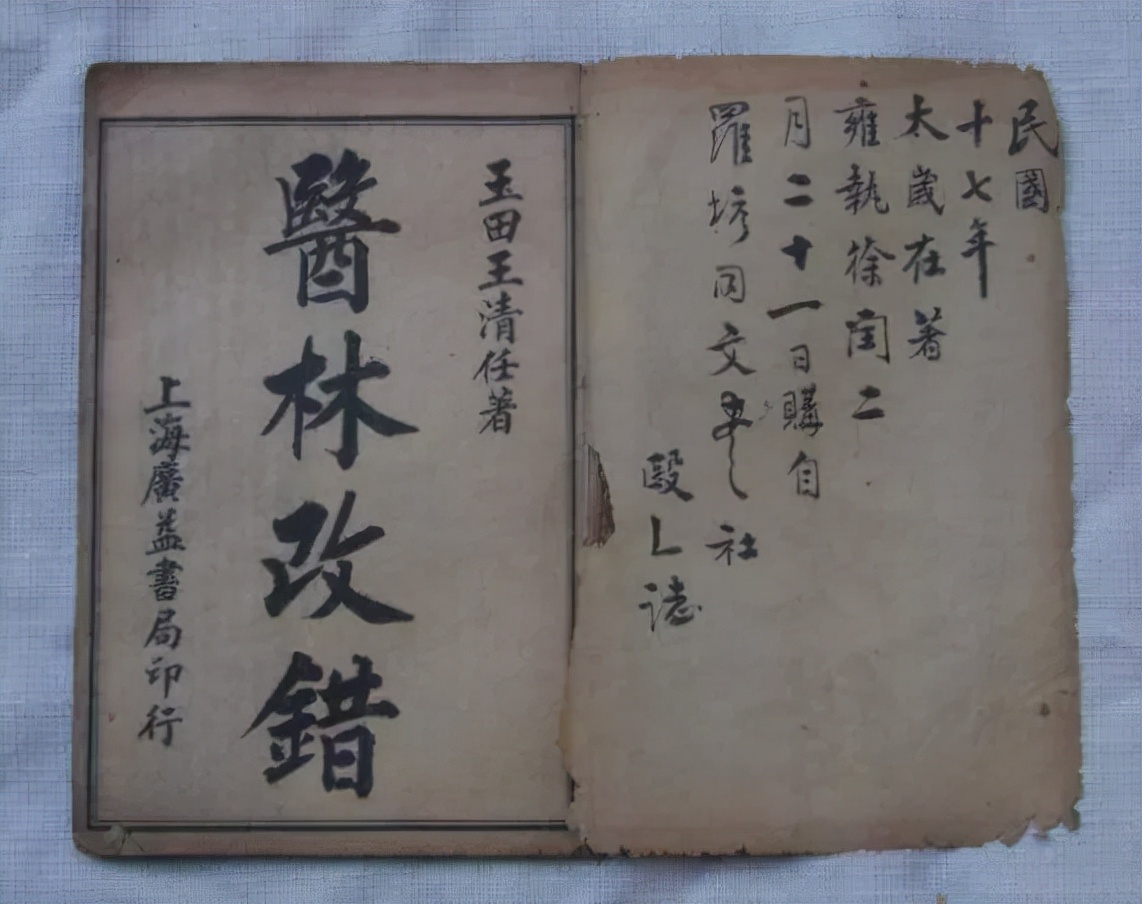 民國
十七年
太歲在著
雍執徐閏二
月二十一日購自
羅同文書社
誌
玉田王清任著
醫林改錯
上海廣益書局印行